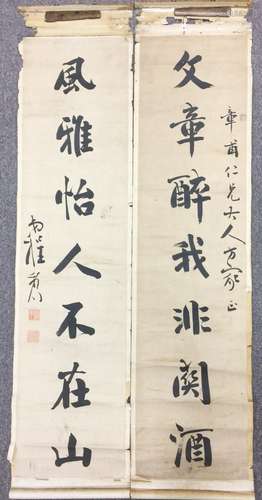 章甫仁兄大人方家正
文章醉我非關酒
風雅怡人不在山